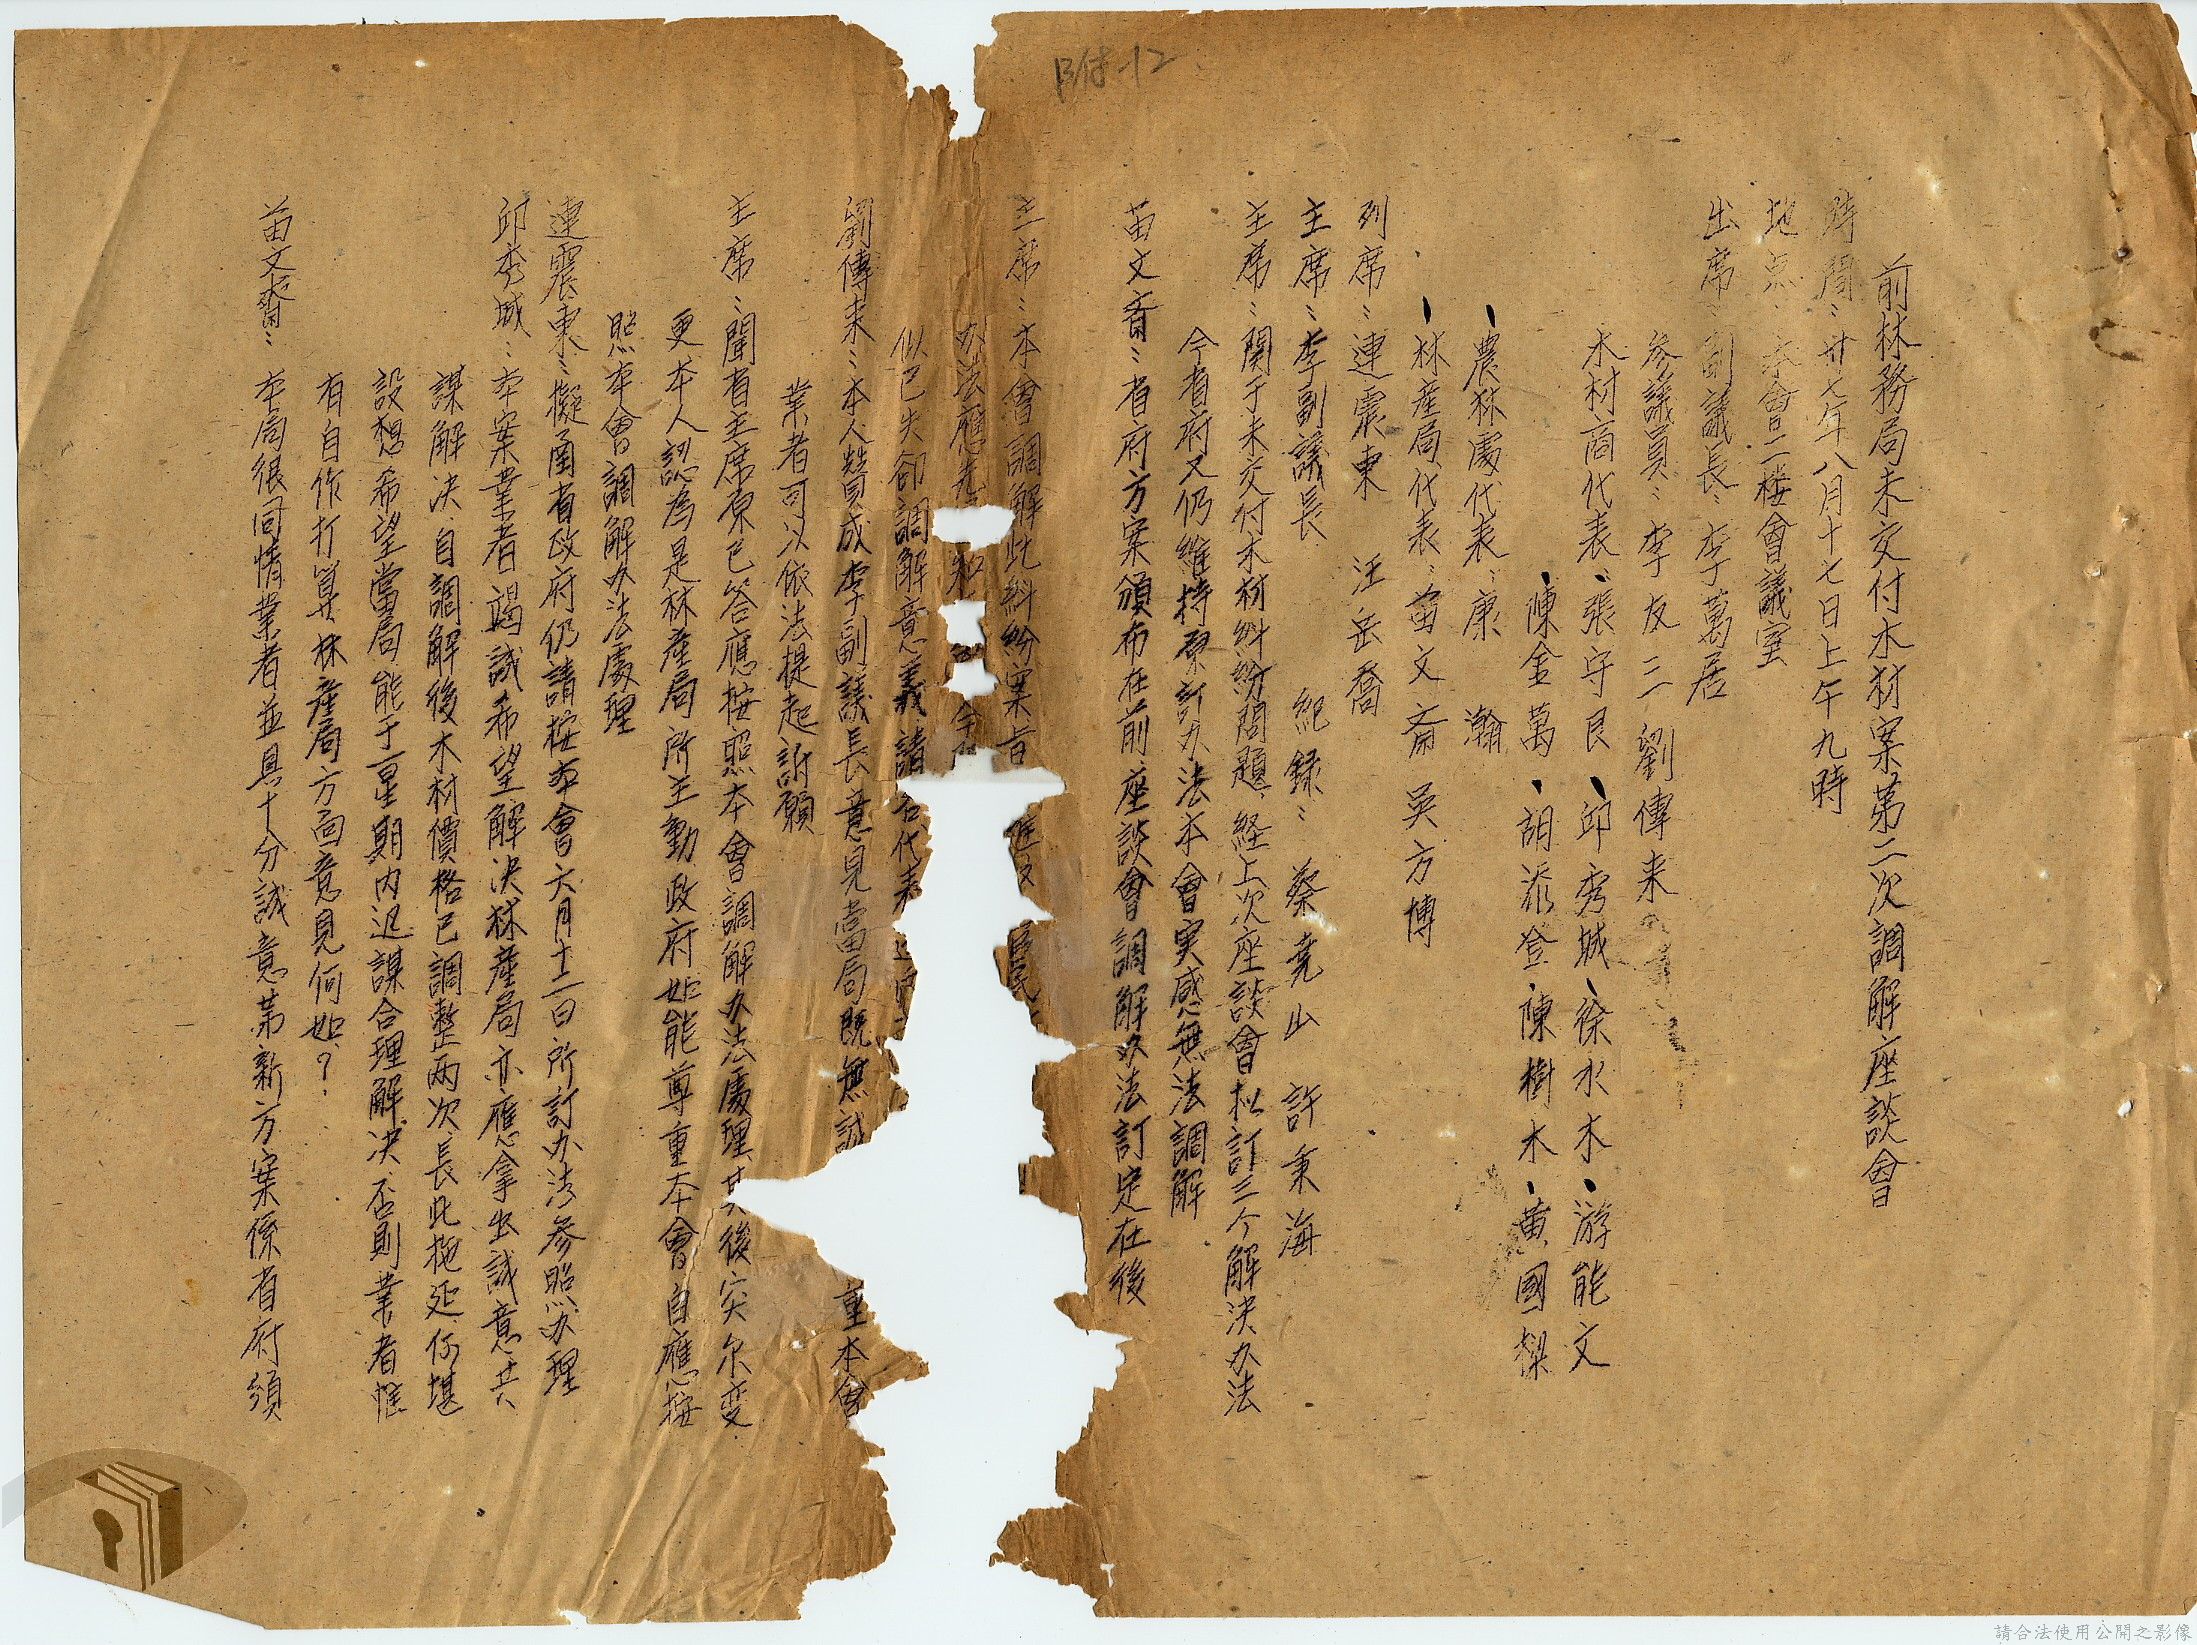 附-12
前林務局未交付木材案第二次調解座談會
時間：卅七年八月十七日上午九時
地点：本會二楼會議室
出席：副議長：李萬居
參議員：李友三 劉傳来
木材商代表：張守良、邱秀城、徐水木、游能文
陳金萬、胡添登、陳樹木、黄國樑
農林處代表：康 瀚
林産局代表：苗文斎 吴方博
列席：連震東 汪岳喬
主席：李副議長 紀録：蔡堯山 許秉海
主席：関于未交付木材糾紛問題、経上次座談會拟訂三个解决办法
今者府又仍維持原訂办法本會実感無法調解
苗文斎：省府方案頒布在前座談會調解办法訂定在後
主席：本會調解此糾紛案旨
办法應先
似已失卻調解意義請各代表
劉傳来：本人賛成李副議長意見當局既無誠 重本會
業者可以依法提起訴願
主席：聞省主席原已答應按照本會調解办法處理其後突尔変
更本人認為是林産局所主動政府如能尊重本會自應按
照本會調解办法處理
連震東：擬函省政府仍請按本會六月十二日所訂办法參照办理
邱秀城：本案業者竭誠希望解决林産局亦應拿出誠意共
謀解决、自調解後木材價格已調整两次、長此拖延何堪
設想希望當局能于一星期内迅謀合理解决、否則業者惟
有自作打算林産局方面意見何如？
苗文齋：本局很同情業者並具十分誠意第新方案係省府頒
請合法使用公開之影像